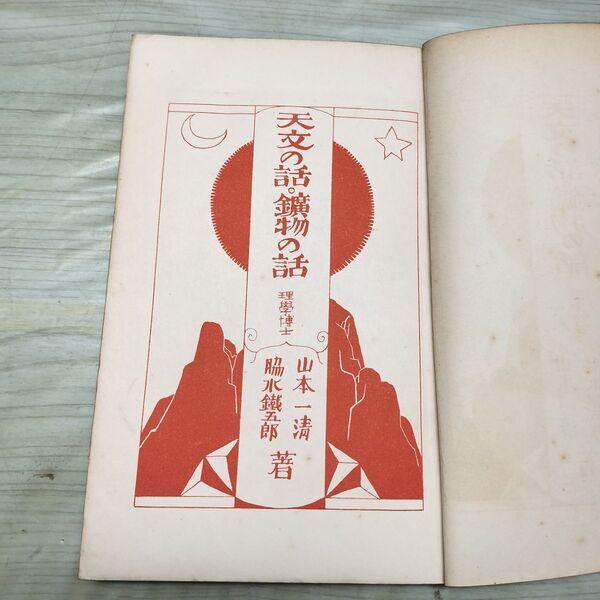 天文の話。鑛物の話
理學博士
山本一清
脇水鐵五郎
著